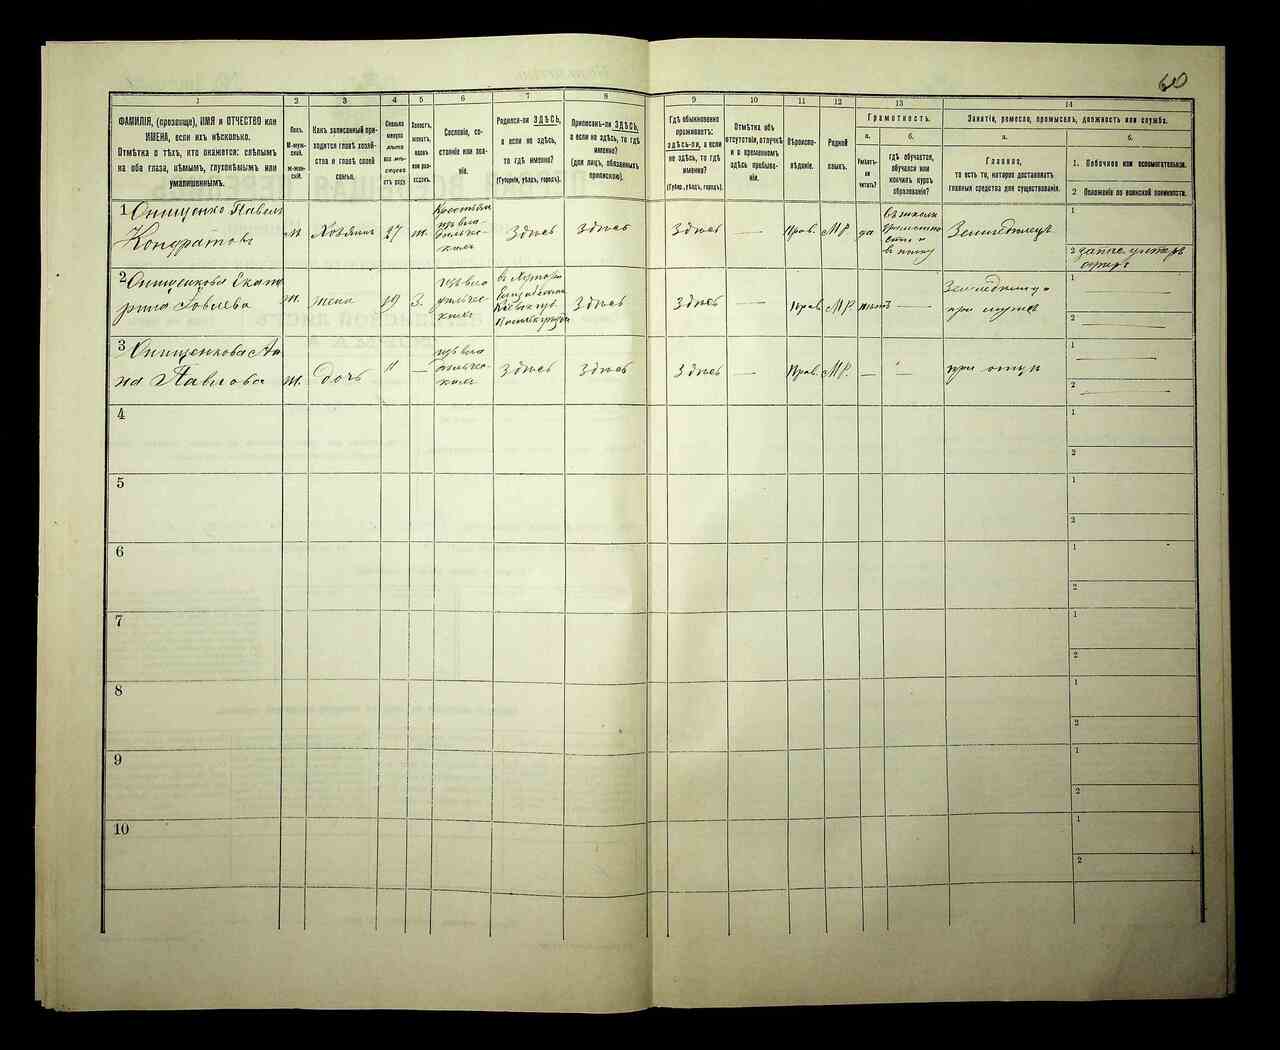 60
1
2
3
4
5
6
7
8
9
10
11
12
13
14
ФАМИЛІЯ, (прозвище), ИМЯ и ОТЧЕСТВО или
ИМЕНА, если ихъ нѣсколько.
Отмѣтка о тѣхъ, кто окажется: слѣпымъ
на оба глаза, нѣмымъ, глухонѣмымъ или
умалишеннымъ.
Полъ.
М-муж-
ской.
Ж-жен-
скій.
Какъ записанный при-
ходится главѣ хозяй-
ства и главѣ своей
семьи.
Сколько
минуло
лѣтъ
Холостъ,
женатъ,
вдовъ
или раз-
веденъ.
Сословіе, со-
стояніе или зва-
ніе.
Родился-ли ЗДѢСЬ,
а если не здѣсь,
то гдѣ именно?
(Губернія, уѣздъ, городъ).
Приписанъ-ли ЗДѢСЬ,
а если не здѣсь, то гдѣ
именно?
(для лицъ, обязанныхъ
припискою).
Гдѣ обыкновенно
проживаетъ:
здѣсь-ли, а если
не здѣсь, то гдѣ
именно?
(Губер., уѣздъ, городъ).
Отмѣтка объ
отсутствіи, отлучкѣ
и о временномъ
здѣсь пребыва-
ніи.
Вѣроиспо-
вѣданіе.
Родной
языкъ.
Грамотность.
а.
Умѣетъ-
ли
читать?
б.
гдѣ обучается,
обучался или
кончилъ курсъ
образованія?
Занятіе, ремесло, промыселъ, должность или служба.
а.
Главное,
то есть то, которое доставляетъ
главныя средства для существованія.
б.
1. Побочное или вспомогательное.
2 Положеніе по воинской повинности.
1 Онищенко Павелъ
Кондратовъ
м. Хозяинъ 27 ж.
Здѣсь Здѣсь Здѣсь Прав. МР. да
въ школѣ
Земледѣлецъ
1
2
2 Онищенкова Екате
рина Іовлева
ж. жена 29 З.
Здѣсь Здѣсь — Прав. МР. нѣтъ —
при мужѣ
1
2
3 Онищенкова Ан
на Павлова
ж. дочь —
Здѣсь Здѣсь Здѣсь — Прав. МР. —
при отцѣ
1
2
4
1
2
5
1
2
6
1
2
7
1
2
8
1
2
9
1
2
10
1
2